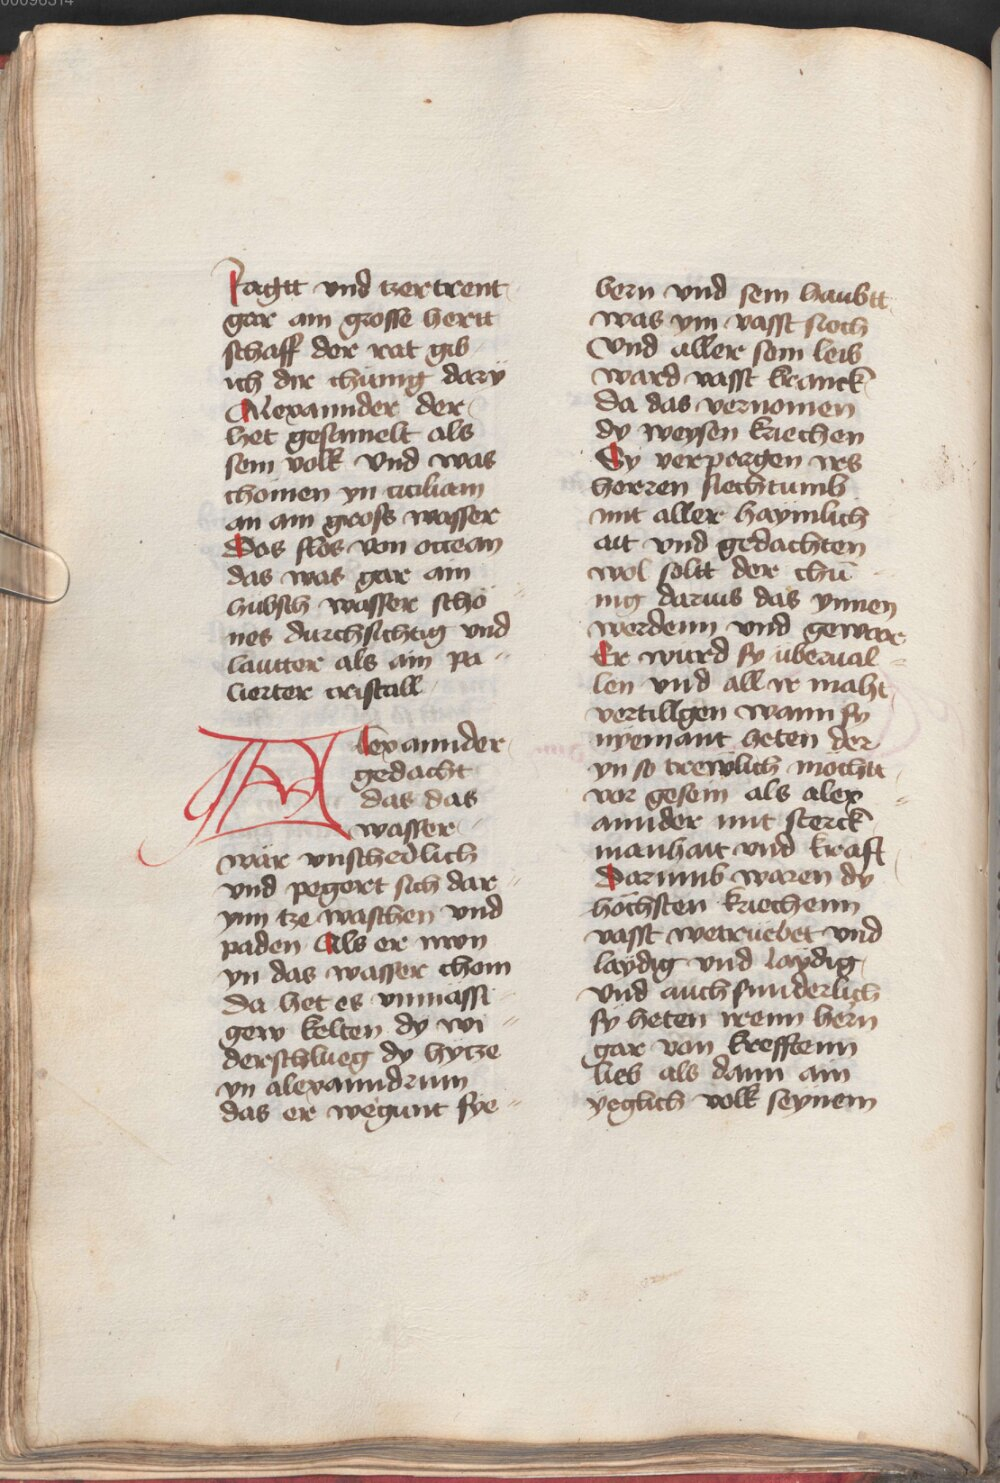 Jagtt vnd tzertrent
gar ain grosse hertt
schaff der rat gib
ich dir chünig dary
Alexannder der
het gesamelt als
sein volk vnd was
chömen yn ciciliam
an ain gross wasser
Das flos von occean
das was gar ain
hubsch wasser schö
nes durchsichtig vnd
lautter als ain pa -
lierter cristall
Alexannder
gedacht
das das
wasser
wär vnschedlich
vnd pegert sich dar -
ynn tze waschen vnd
paden Als er nwn
yn das wasser chom
da het es vnmässi -
gew kelten dy wi -
derschlueg dy hytze
yn alexanndrum
das er wegunt fye -
bern vnd sein haubtt
was ym vasst siech
Vnd aller sein leib
ward vasst kranck
da das vernomen
dy weysen kriechen
Sy verpargen irs
herren siechtumb
mit aller haymlich
ait vnd gedachten
wol soltt der chü -
nig darius das ynnen
werdenn vnd gewar
Er wurd sy überual -
len vnd all ir maht
vertillgen wann sy
nyemant heten der
yn so trewlich möchtt
vor gesein als alex -
annder mit sterck
manhait vnd kraft
Darumb waren dy
höchsten kriechenn
vasst wetruebet vnd
laydig vnd laydig
vnd auch sunderlich
sy heten irenn hern
gar von krefftenn
lieb als dann ain
yeglich volk seynem